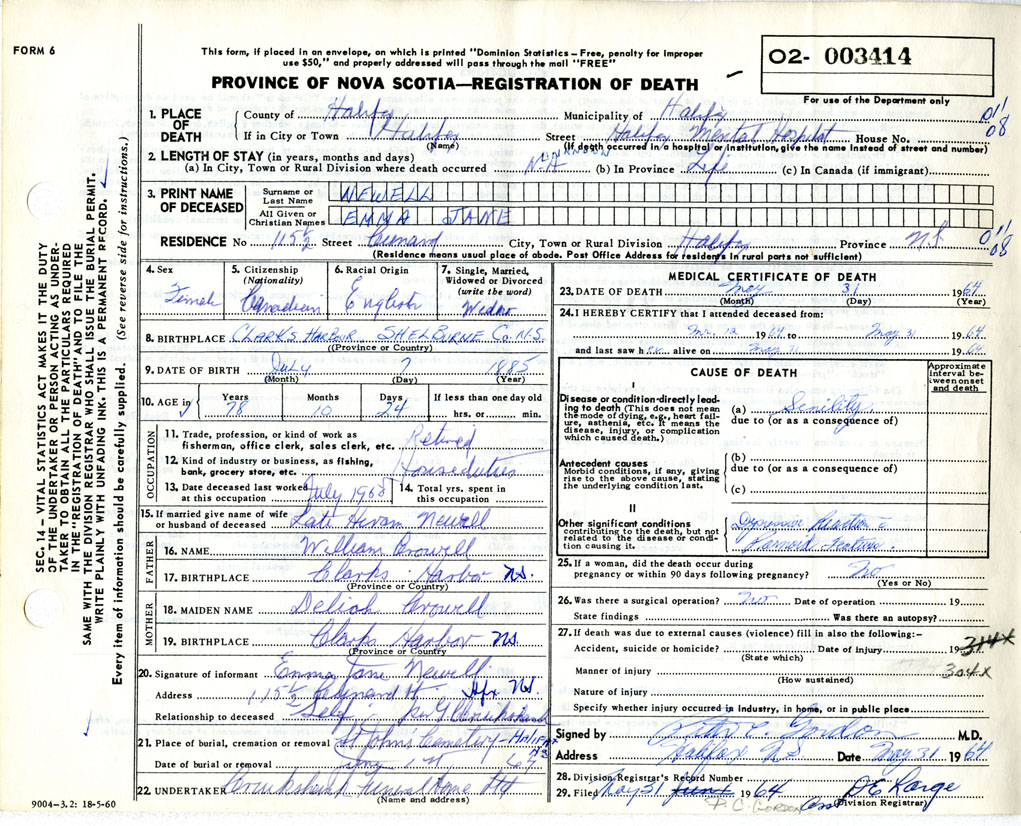 FORM 6
This form, if placed in an envelope, on which is printed "Dominion Statistics – Free, penalty for improper
use $50," and properly addressed will pass through the mail "FREE"
PROVINCE OF NOVA SCOTIA—REGISTRATION OF DEATH
O2- 003414
For use of the Department only
1. PLACE OF DEATH
County of Halifax Municipality of Halifax 01'
If in City or Town Halifax Street Halifax Mental Hospital House No. 08
(Name) (If death occurred in a hospital or institution, give the name instead of street and number)
2. LENGTH OF STAY (in years, months and days) UNKNOWN
(a) In City, Town or Rural Division where death occurred (b) In Province Life (c) In Canada (if immigrant)
3. PRINT NAME OF DECEASED
Surname or Last Name NEWELL
All Given or Christian Names EMMA JANE
RESIDENCE No 115½ Street Cunard City, Town or Rural Division Halifax Province N.S 01'
08
(Residence means usual place of abode. Post Office Address for residents in rural parts not sufficient)
4. Sex Female
5. Citizenship (Nationality) Canadian
6. Racial Origin English
7. Single, Married, Widowed or Divorced (write the word) Widow
8. BIRTHPLACE CLARK'S HARBOR SHELBURNE Co. N.S.
(Province or Country)
9. DATE OF BIRTH July 7 1885
(Month) (Day) (Year)
10. AGE in Years Months Days If less than one day old
78 10 24 hrs. or min.
OCCUPATION
11. Trade, profession, or kind of work as fisherman, office clerk, sales clerk, etc. Retired
12. Kind of industry or business, as fishing, bank, grocery store, etc. Houseduties
13. Date deceased last worked at this occupation July 196
14. Total yrs. spent in this occupation
15. If married give name of wife or husband of deceased Late Hiram Newell
FATHER
16. NAME William Crowell
17. BIRTHPLACE Clarks Harbor NS.
(Province or Country)
MOTHER
18. MAIDEN NAME Deliah Crowell
19. BIRTHPLACE Clarks Harbor NS.
(Province or Country)
20. Signature of informant Emma Jane Newell
Address 115½ Cunard St. Hfx NS.
Relationship to deceased Self Cruikshank
21. Place of burial, cremation or removal St Johns Cemetery - Halifax
NS
Date of burial or removal 64
22. UNDERTAKER Cruikshank Funeral Home Ltd
(Name and address)
9004—3.2: 18-5-60
MEDICAL CERTIFICATE OF DEATH
23. DATE OF DEATH May 31 1964
(Month) (Day) (Year)
24. I HEREBY CERTIFY that I attended deceased from:
12 1964 to May 31 1964
and last saw her alive on May 31 1964
CAUSE OF DEATH
Approximate interval between onset and death
I
Disease or condition directly leading to death (This does not mean the mode of dying, e.g., heart failure, asthenia, etc. It means the disease, injury, or complication which caused death.)
(a) Senility
due to (or as a consequence of)
Antecedent causes
Morbid conditions, if any, giving rise to the above cause, stating the underlying condition last.
(b)
due to (or as a consequence of)
(c)
II
Other significant conditions contributing to the death, but not related to the disease or condition causing it.
Depressive Reaction c̄
Paranoid features.
25. If a woman, did the death occur during pregnancy or within 90 days following pregnancy? No
(Yes or No)
26. Was there a surgical operation? No Date of operation 19
State findings Was there an autopsy?
27. If death was due to external causes (violence) fill in also the following:-
Accident, suicide or homicide? Date of injury 19 314X
(State which)
Manner of injury 304X
(How sustained)
Nature of injury
Specify whether injury occurred in industry, in home, or in public place
Signed by Gordon M.D.
Address Halifax NS Date May 31 1964
28. Division Registrar's Record Number
29. Filed May 31 June 1 1964 D E Large
P. C. GORDON (Division Registrar)
SEC. 14 – VITAL STATISTICS ACT MAKES IT THE DUTY
OF THE UNDERTAKER OR PERSON ACTING AS UNDER-
TAKER TO OBTAIN ALL THE PARTICULARS REQUIRED
IN THE "REGISTRATION OF DEATH" AND TO FILE THE
SAME WITH THE DIVISION REGISTRAR WHO SHALL ISSUE THE BURIAL PERMIT.
WRITE PLAINLY WITH UNFADING INK. THIS IS A PERMANENT RECORD.
Every item of information should be carefully supplied. (See reverse side for instructions.)